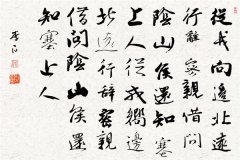 從戎向邊北遠
行辭密親借問
陰山候還知塞
上人從戎向邊
北遠行辭密親
借問陰山候還
知塞上人